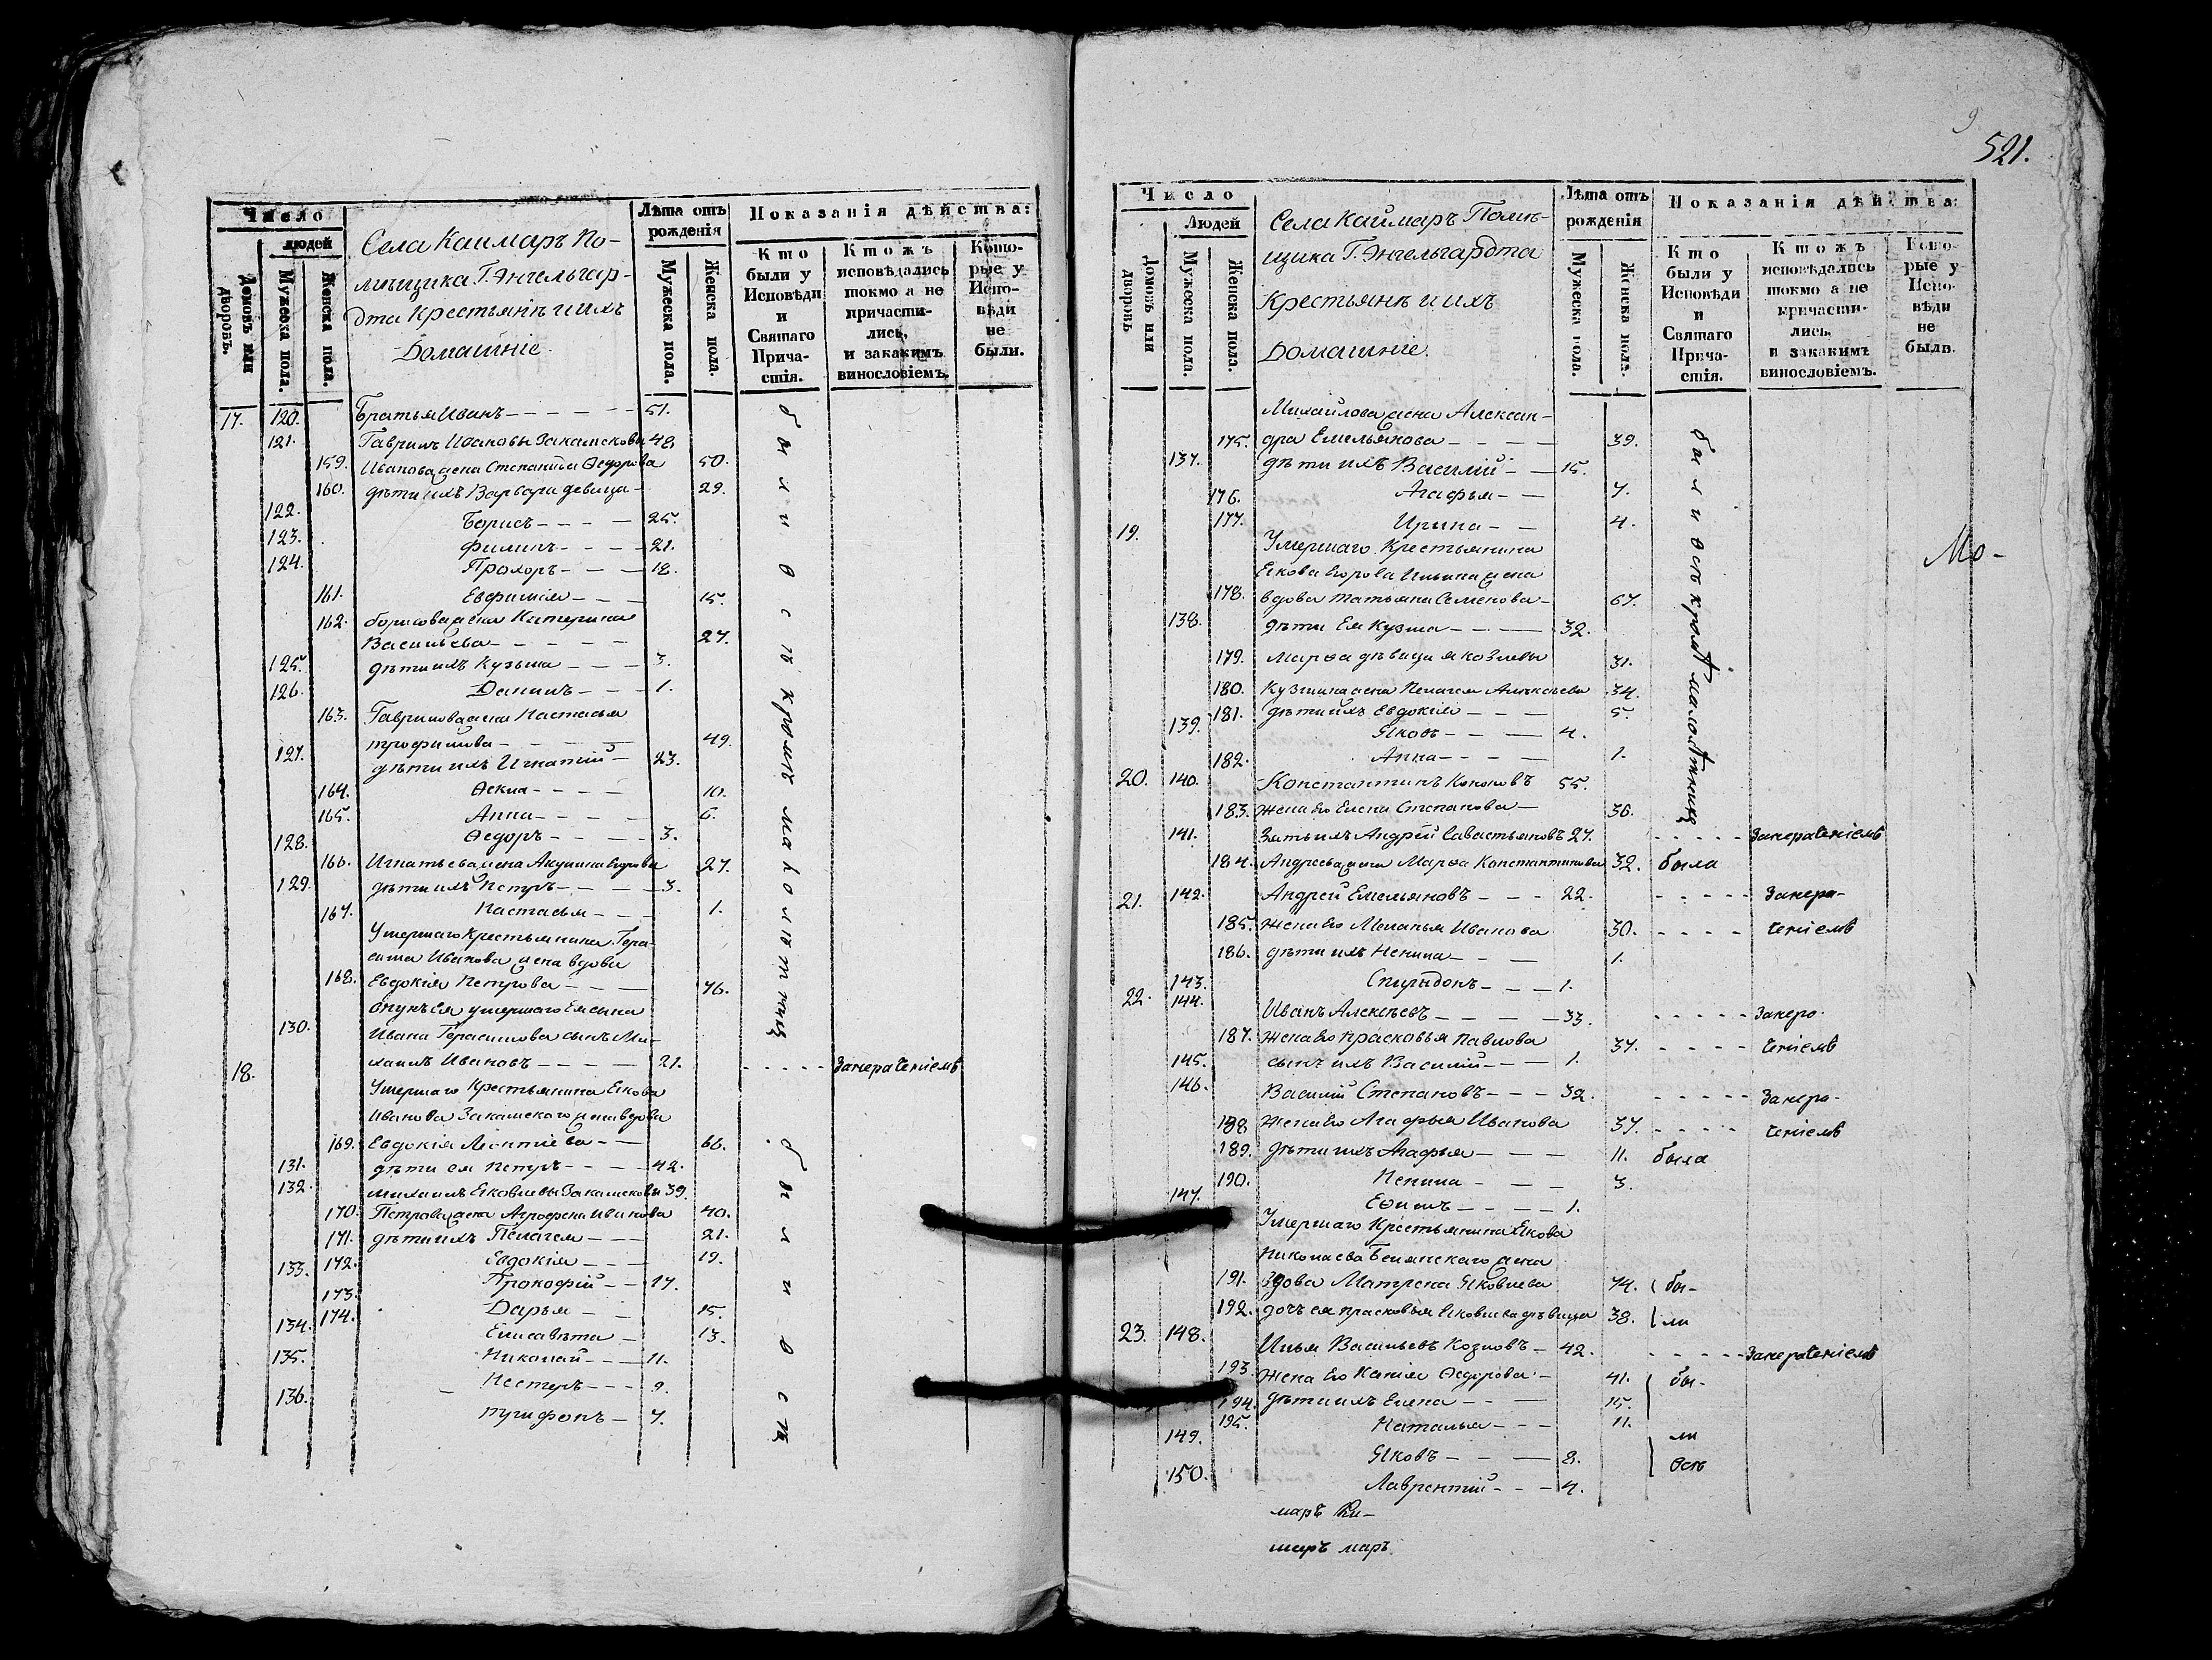 Число
людей
Домовъ или дворовъ.
Мужеска пола.
Женска пола.
Села Каймаръ По-
мѣщика Г. Энгельгар-
дта Крестьянѣ и ихъ
Домашніе.
Лѣта отъ рожденія
Мужеска пола.
Женска пола.
Показанія дѣйства:
Кто были у Исповѣди и Святаго Прича-стія.
Ктожъ исповѣдались токмо а не причасти-лись, и закакимъ винословіемъ.
Кото-рые у Испо-вѣди не были.
17. 120. Братья Иванъ 51.
121. Гаврилъ Ивановы Закамсковы 48
159. Иванова жена Степанида Ѳедорова 50.
160. дѣти ихъ Варвара девица 29.
122. Борисъ 25.
123. Филипъ 21.
124. Прохоръ 18.
161. Евфимія 15.
162. борисова жена Катерина
Васильева 27.
125. дѣти ихъ Кузьма 3.
126. Данилъ 1.
163. Гаврилова жена Настасья
трофимова 49.
127. дѣти ихъ Игнатій 23.
164. Ѳекла 10.
165. Анна 6.
128. Ѳедоръ 3.
166. Игнатьева жена Акулина Егорова 27.
129. дѣти ихъ Петръ 3.
167. Настасья 1.
Умершаго Крестьянина Гера-
сима Иванова жена вдова
168. Евдокія Петрова 76.
внукъ Ея умершаго Ея сына
130. Ивана Герасимова сынъ Ми-
хаилъ Ивановъ 21. Занераченіемъ
18. Умершаго Крестьянина Якова
Иванова Закамскаго жена вдова
169. Евдокія Леонтіева 66.
131. дѣти ея Петръ 42.
132. михаилъ Яковлевы Закамсковы 39.
170. Петрова жена Агрофена Иванова 40.
171. дѣти ихъ Пелагея 21.
172. Евдокія 19.
133. Прокофій 17.
173. Дарья 15.
174. Елисавѣта 13.
134. Николай 11.
135. Нестеръ 9.
136. трифонъ 7.
были Ѳсѣ кромѣ малолѣтныхъ
были Ѳсѣ
521.
Число
Людей
Домовъ или дворовъ
Мужеска пола.
Женска пола.
Села Каймаръ Помѣ-
щика Г. Энгельгардта
Крестьянѣ и ихъ
Домашніе.
Лѣта отъ рожденія
Мужеска пола.
Женска пола.
Показанія дѣйства:
Кто были у Исповѣди и Святаго Прича-стія.
Ктожъ исповѣдались токмо а не причасти-лись, и закакимъ винословіемъ.
Кото-рые у Испо-вѣди не были.
Михайлова жена Алексан-
175. дра Емельянова 39.
137. дѣти ихъ Василій 15.
176. Агафья 7.
177. Ирина 4.
19. Умершаго Крестьянина
Якова Егорова Ильина жена
178. вдова Татьяна Семенова 67.
138. дѣти Ея Кузма 32.
179. Марѳа дѣвица яковлевы 31.
180. Кузмина жена Пелагея Алексѣева 34.
181. дѣти ихъ Евдокія 5.
139. Яковъ 4.
182. Анна 1.
20. 140. Константинъ Кононовъ 55.
183. Жена Его Елена Степанова 36.
141. Зать ихъ Андрей Савастьяновъ 27. Занераченіемъ
184. Андреева жена Марѳа Константинова 32. была
21. 142. Андрей Емельяновъ 22. Занера-
185. Жена Его Меланья Иванова 30. ченіемъ
186. дѣти ихъ Ненила 1.
143. Спиридонъ 1.
22. 144. Иванъ Алексѣевъ 33. Занера-
187. Жена Его прасковья павлова 37. ченіемъ
145. сынъ ихъ Василій 1.
146. Василій Степановъ 32. Занера-
188 Жена Его Агафья Иванова 37. ченіемъ
189. дѣти ихъ Агафья 11. была
190. Ненила 3.
147. Еѳимъ 1.
Умершаго Крестьянина Якова
Николаева жена
191. Вдова Матрена Яковлева 74. бы-
192. дочь ея прасковья Яковлева дѣвица 38. ли
23. 148. Илья Васильевъ Козловъ 42. Занераченіемъ
193. Жена Его Ѳедорова 41. бы-
194. дѣти ихъ Елена 15.
195. Наталья 11. ли
149. Яковъ 8. Ѳсѣ
150. Лаврентій 4.
были Ѳсѣ кромѣ малолѣтныхъ
Мо-
маръ
маръ